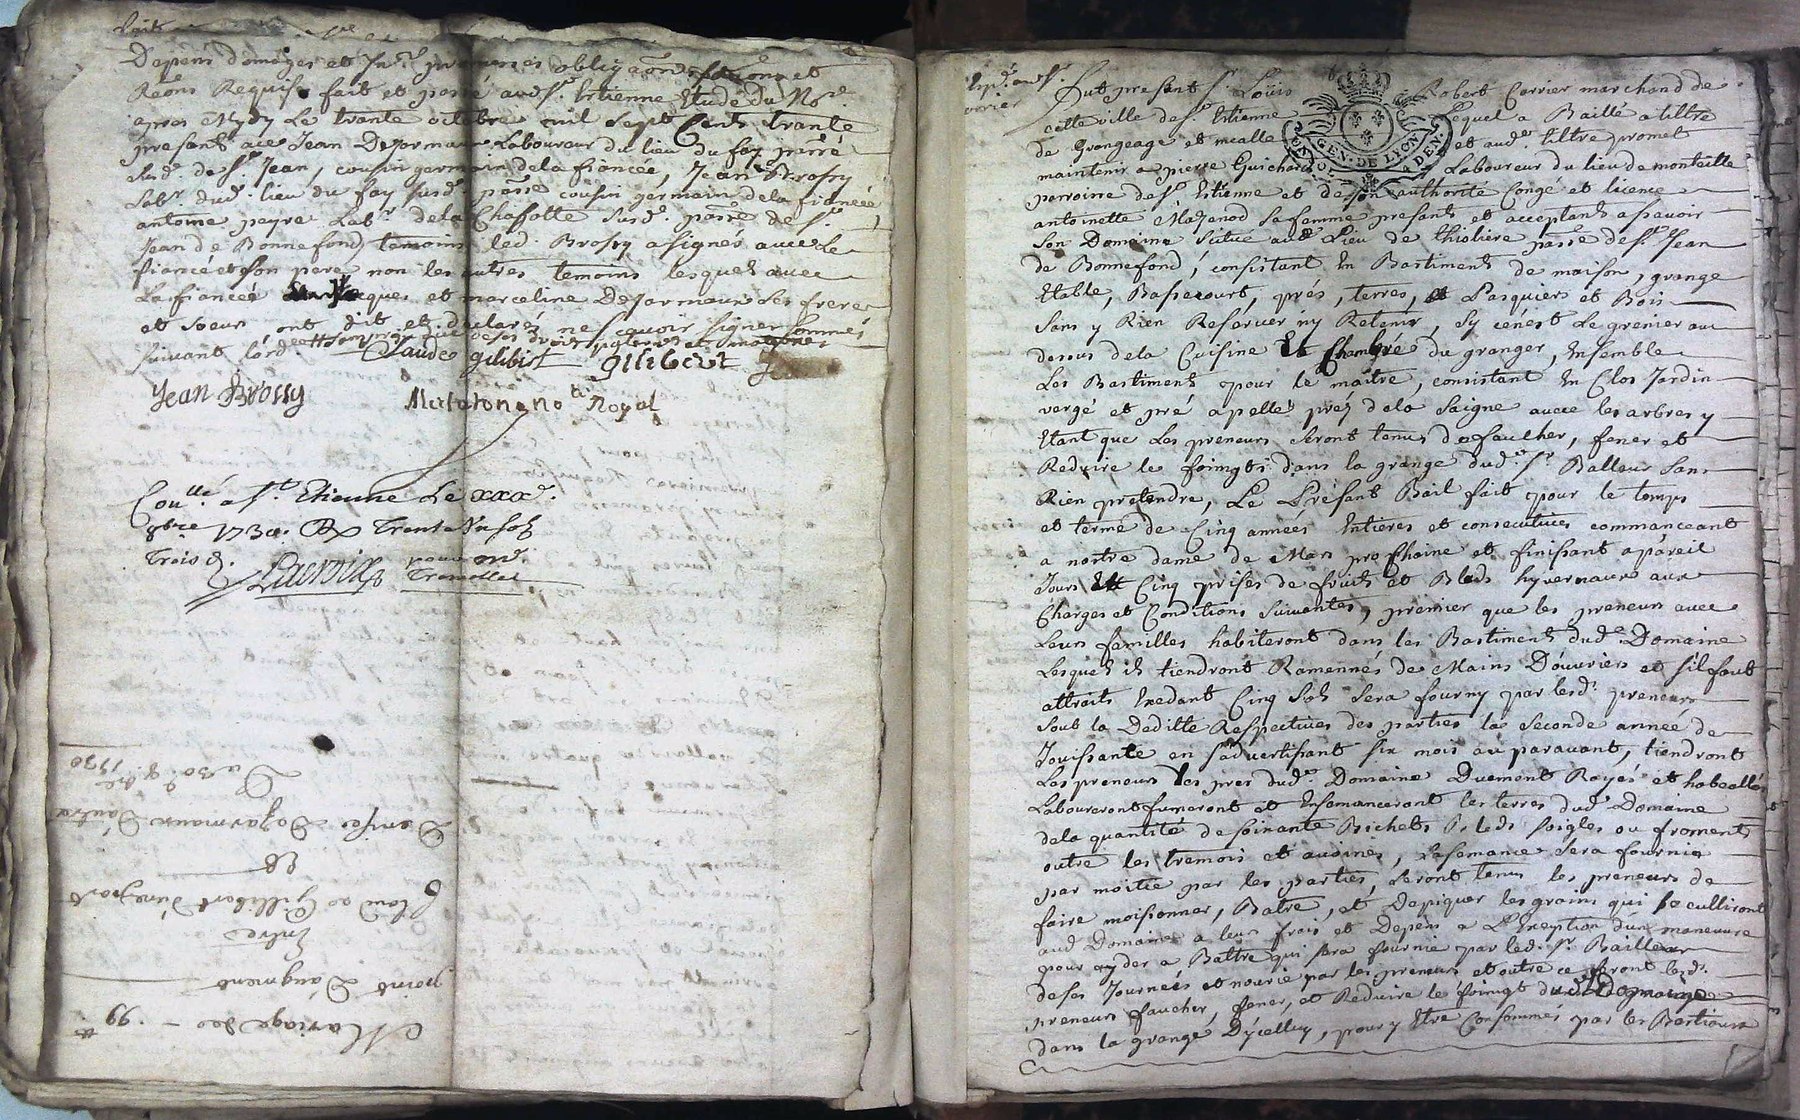 Depens domages et
Reons Requis fait et passé aud St Etienne Etude du Nore
apres Mydy Le trante octobre mil Sept Cents trante
presents avec Jean Dejarmaux Laboureur du lieu du fay parre
Sud. de St Jean, cousin germain dela fiancée, Jean Brossy
Labr dud. lieu du fay susd. parre cousin germain dela fiancée
antoine peyre Labr dela Chassotte Susd. parre de St
Jean de Bonnefond temoins led. Brossy a signés avec le
fiancé et Son pere non les autres temoins lesquels avec
La fiancée Jacques et marceline Dejarmaux Ses freres
et Soeurs ont dit et declarés ne Scavoir signer Sommés
suivant l'ord.
Claude gilibert gilibert
Jean Brossy
Matalon no.re Royal
Coullé a St Etienne Le xxxe
8bre 1730. Trente Un sols
Trois d. Lacroix pour mr
Tramollet
Mariage de - 99.
point D'augment
Entre
Claude Gillibert D'une part
Et
Denise Dejarmaux D'autre
Du 30. 8bre
1730
GEN. DE LYON
Fut present Sr Louis Robert Carrier marchand de
cette ville de St Etienne Lequel a Baillé a tiltre
de Grangeage et me aud. tiltre promet
maintenir a pierre Guichard Laboureur du lieu de monteille
parroisse de St Etienne et de son authorité Congé et licence
antoinette Mazenod Sa femme presents et acceptants assavoir
Son Domaine Scitué aud. Lieu de thioliere parre de St Jean
de Bonnefond, consistant En Bastiments de maison, grange
Etable, Bassecourt, prés, terres, Pasquiers et Bois
Sans y Rien Reserver ny Retenir, Sy cenest Le grenier au
dessus dela Cuisine Et Chambre du granger, Ensemble
Les Bastiments pour le maitre, consistant En Clos Jardin
vergé et pré apellé préz dela Saigne avec les arbres y
Etant que Les preneurs Seront tenus de faucher, fener et
Reduire le foingts dans la grange dud. Sr Bailleur Sans
Rien pretendre, Le Présant Bail fait pour le temps
et terme de Cinq années Entieres et consecutives commanceant
a nostre dame de Mars prochaine et finissant a pareil
Jours Et Cinq prises de fruits et Bleds hyvernaux aux
Charges et Conditions Suivantes, premier que les preneurs avec
Leurs familles habiteront dans les Bastiments dud. Domaine
Lesquels ils tiendront Ramennés de Mains D'ouvriers et sil faut
attraits Exedant Cinq Sols Sera fourny par lesd. preneurs
Sous la Deditte Respectives des parties la Seconde année de
Jouissante en S'advertissant six mois auparavant, tiendront
Les preneurs les pres dud. Domaine Duement Rayés et habeallés
Laboureront fumeront et Ensemanceront les terres dud. Domaine
dela quantité de soixante Bichets Bleds Soigles ou froment
outre les tremois et avoines, La semance Sera fournie
par moitié par les parties, Seront tenus les preneurs de
faire moissonner, Batre, et Depiquer les grains qui se culliront
aud Domaine a leurs frais et Depens a L'Exeption d'un maneuvre
pour ayder a Battre qui sera fournie par led. Sr Bailleur
de ses Journées et nourie par les preneurs et outre ce feront lesd.
preneurs faucher, fener, et Reduire le foingt dud. Domaine
dans la grange D'ycelluy, pour y Etre Consommés par les Bestiaux